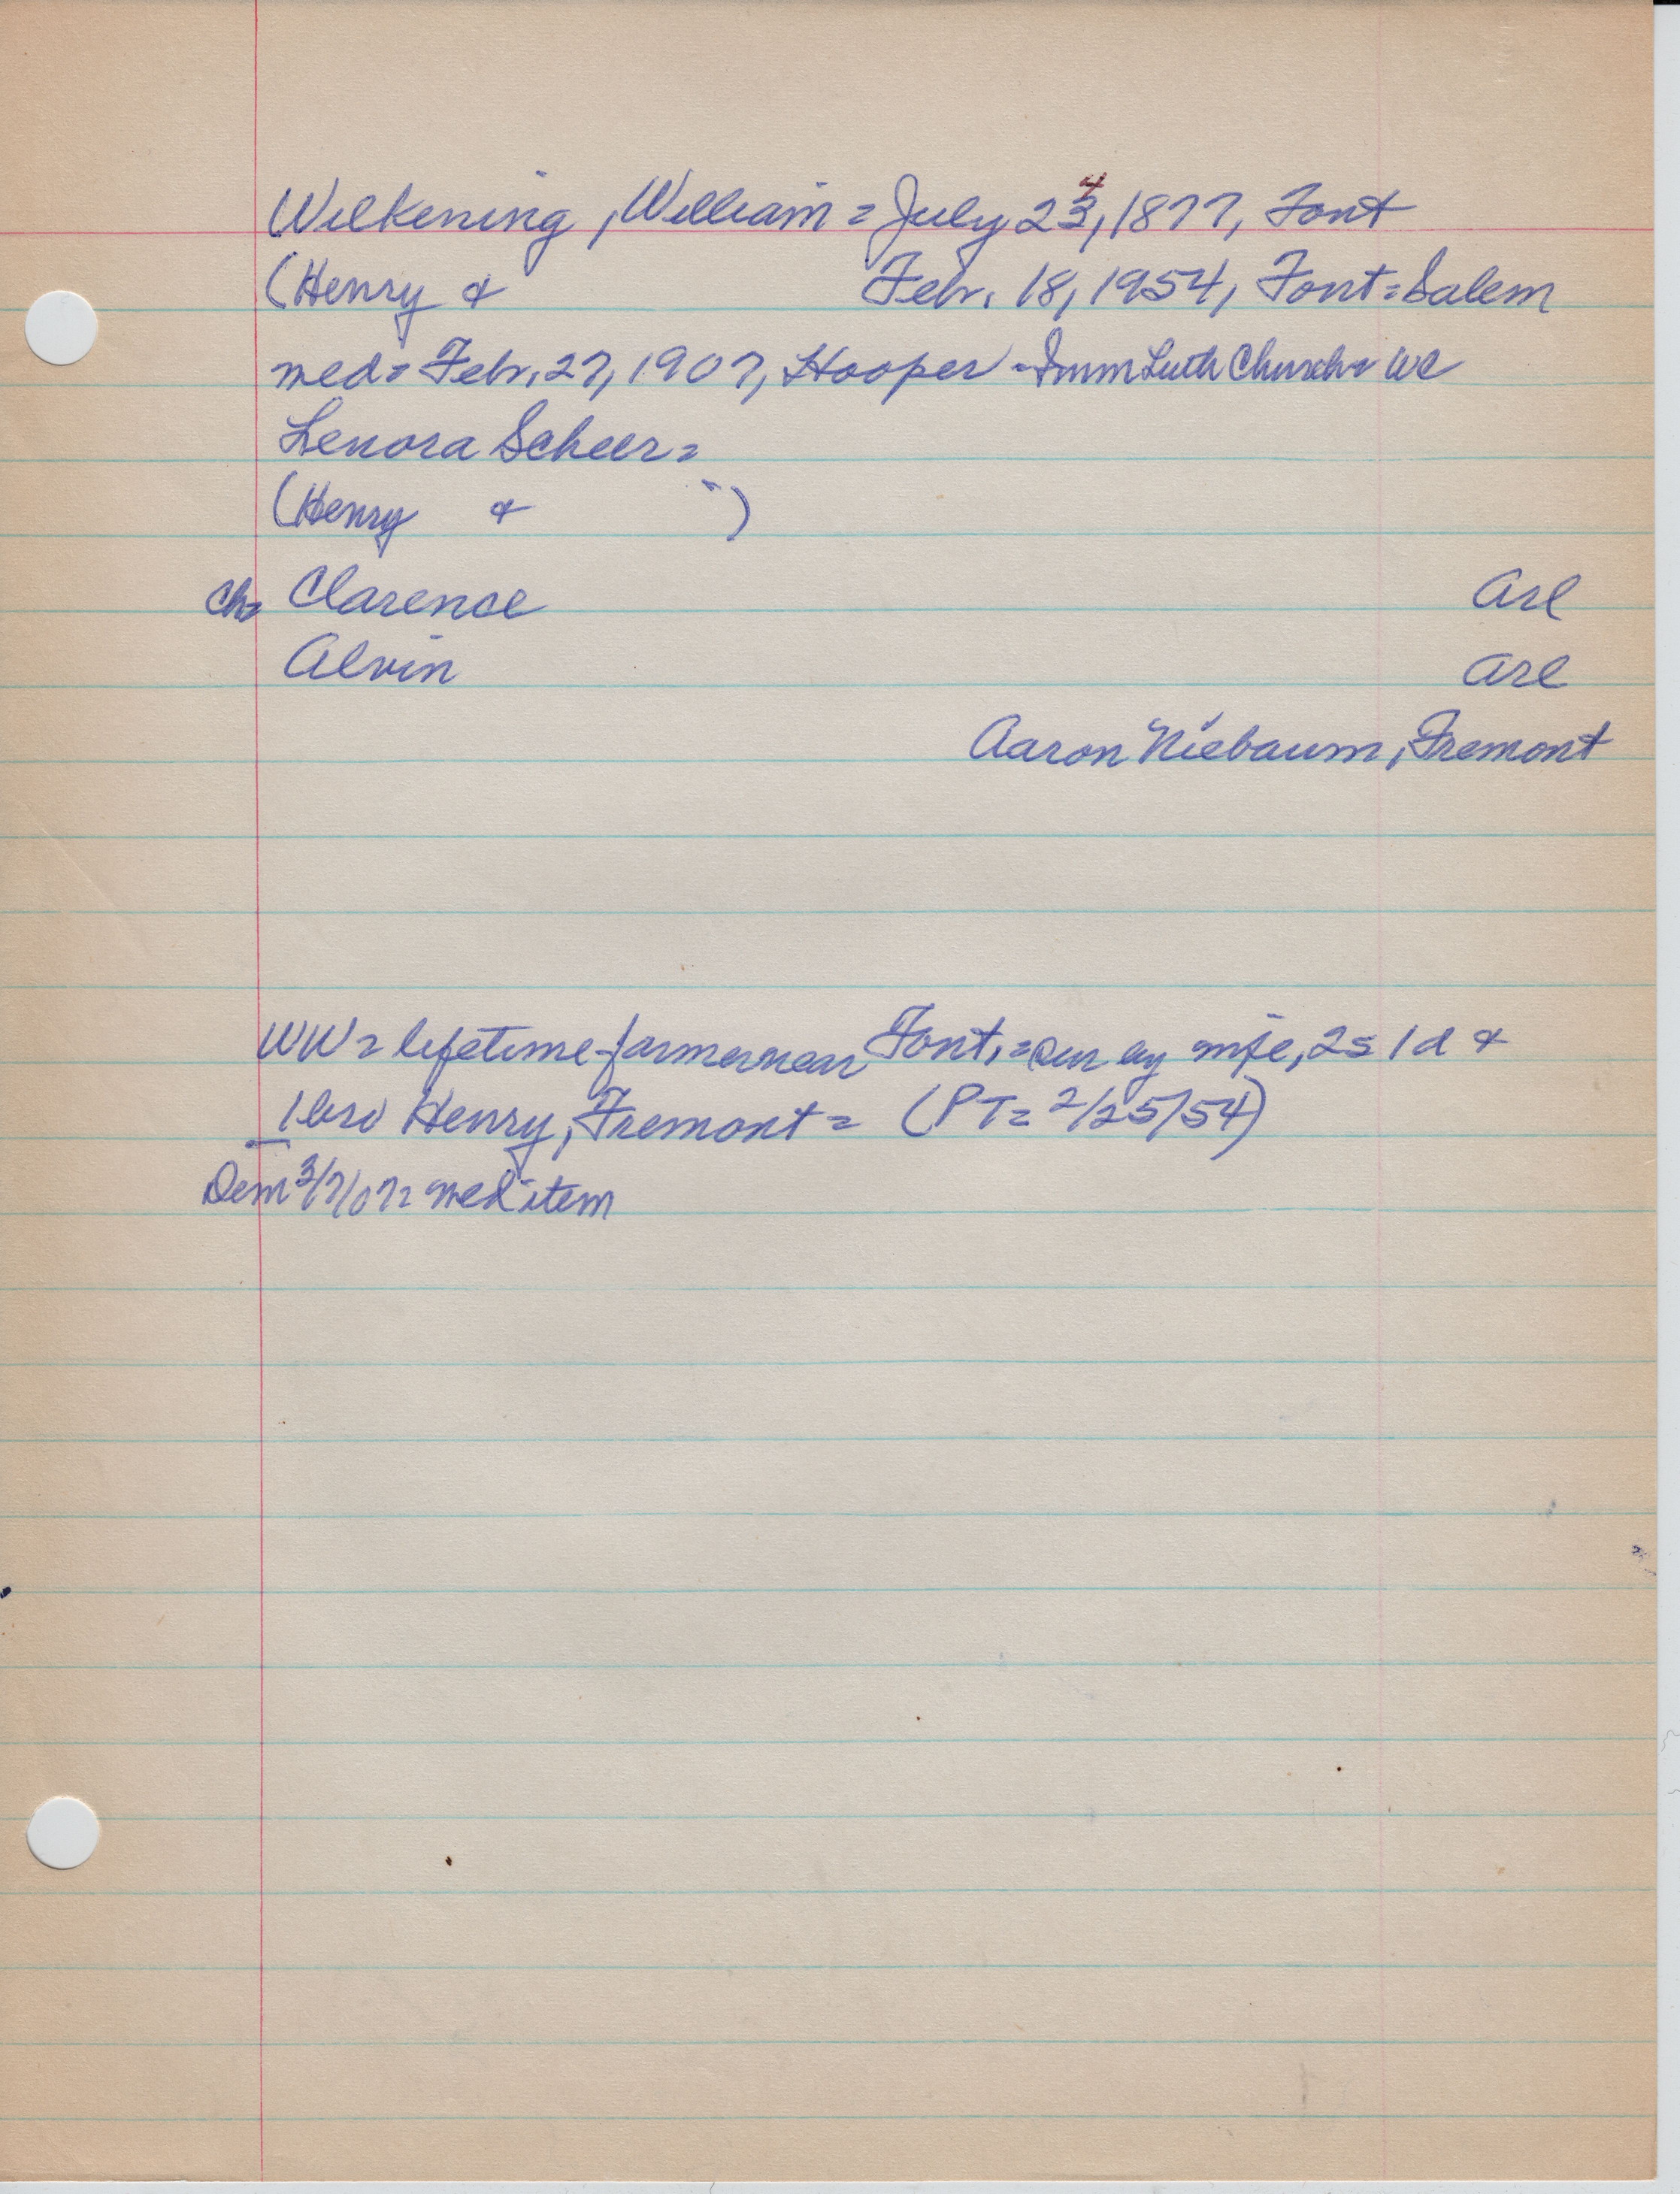 Wilkening, William = July 23, 1877, Font
4
(Henry & Febr. 18, 1954, Font = Salem
med = Febr. 27, 1907, Hooper - Imm Luth Church = WC
Lenora Scheer =
(Henry & )
Ch = Clarence Arl
Alvin Arl
Aaron Niebaum, Fremont
WW = lifetime farmer near Font, = sur by wife, 2s 1d &
1 bro Henry, Fremont = (PT = 2/25/54)
Dem 3/7/07 = med item